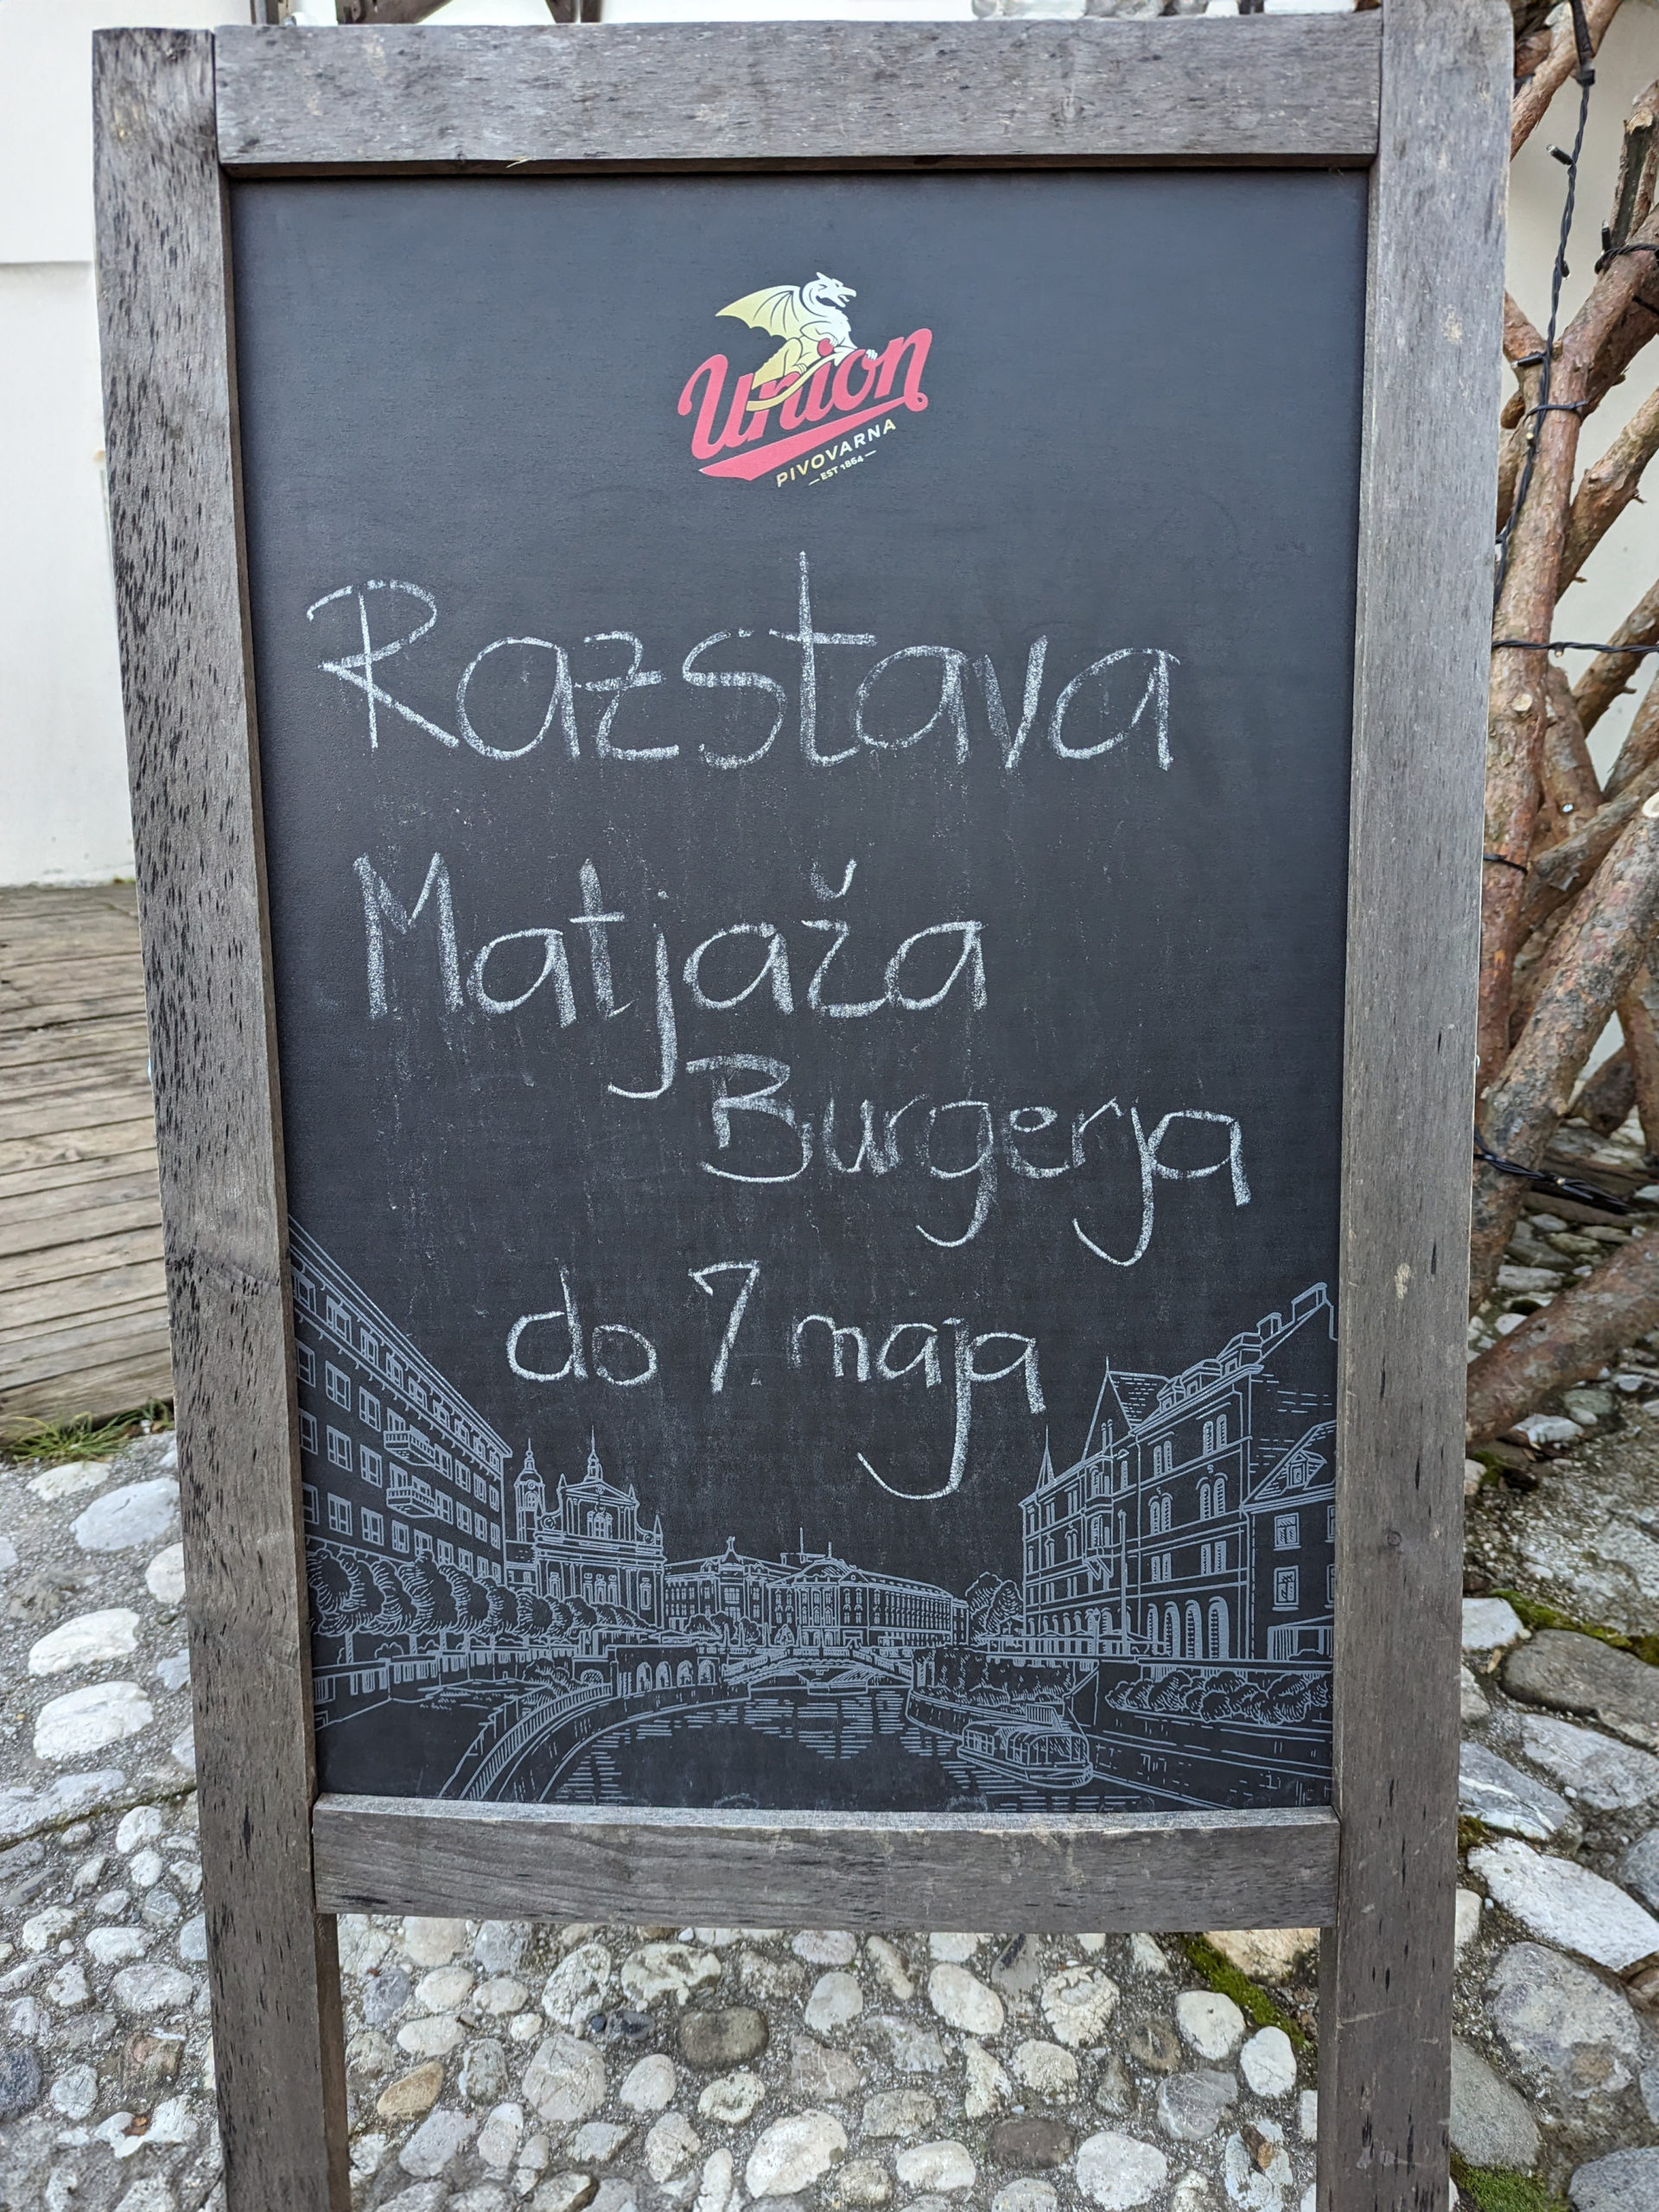 Union
PIVOVARNA
— EST 1864 —
Razstava
Matjaža
Burgerja
do 7. maja